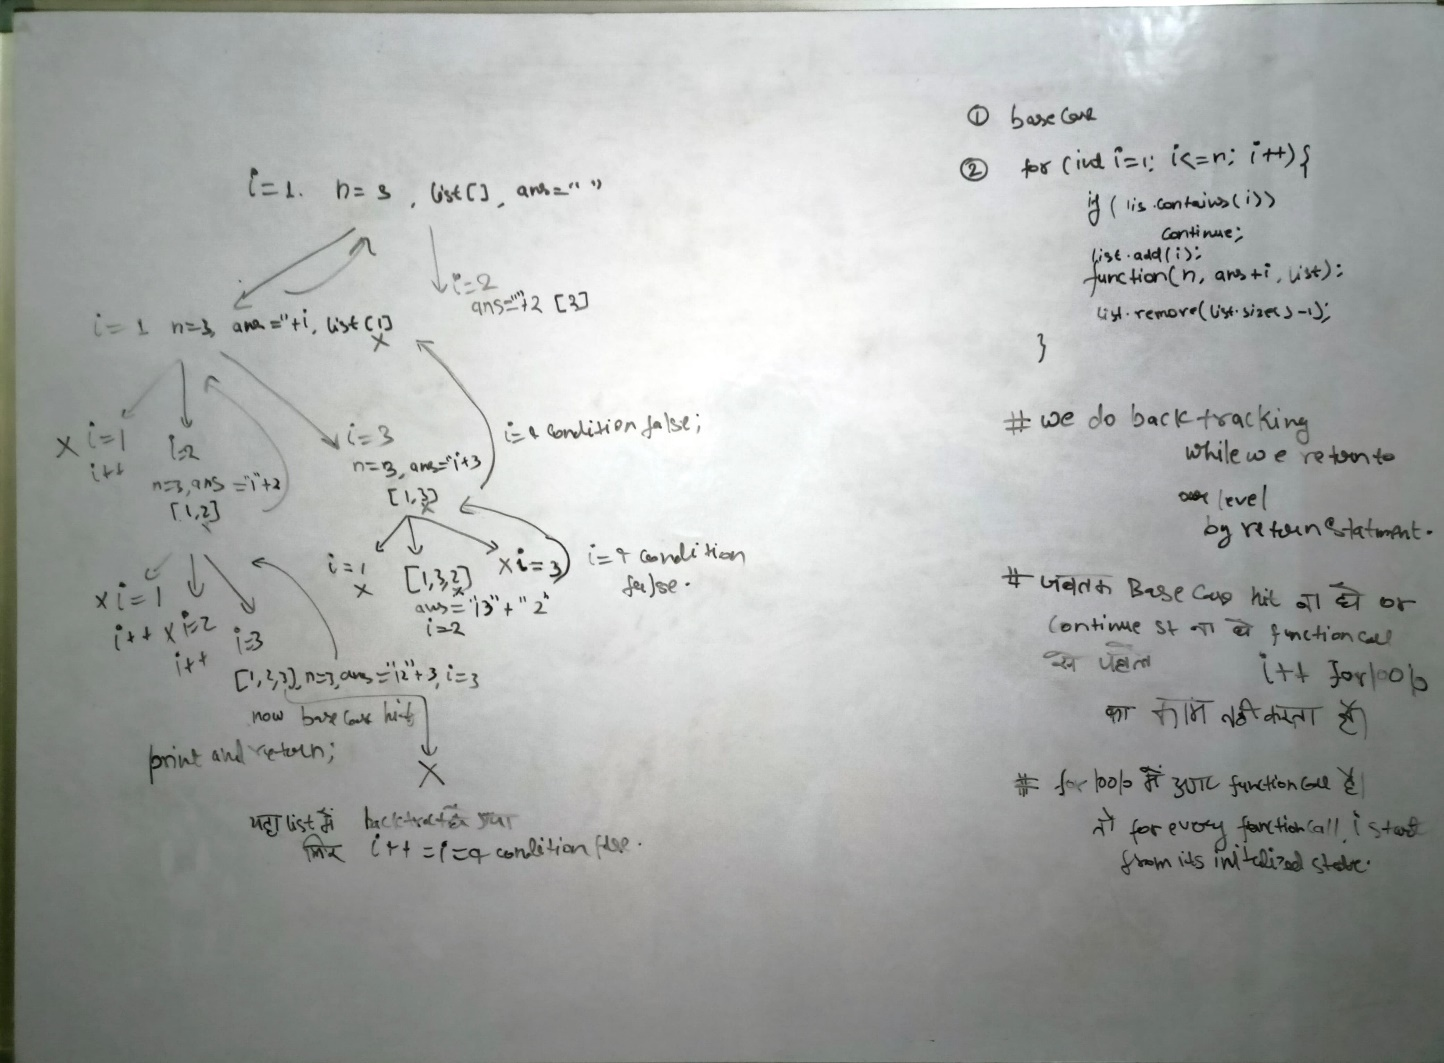 i=1. n=3, list[], ans=" "
i=2
ans=""+2 [3]
i=1 n=3, ans="+i, list[1]
x
x i=1
i++
i=2
n=3, ans="1"+2
[1,2]
i=3
n=3, ans="i+3
[1,3]
x
i=4 condition false;
i=1
x
[1,3,2]
x
ans="13"+"2"
i=2
x i=3
i=4 condition
false.
x i=1
i++
x i=2
i++
i=3
[1,2,3], n=3, ans="12"+3, i=3
now base case hit
print and return;
x
list में
फिर i++ = i=4 condition false.
① base case
② for (int i=1; i<=n; i++){
if (lis.contains(i))
continue;
list.add(i);
function(n, ans+i, list);
list.remove(list.size()-1);
}
# we do back tracking
while we return to
level
by return statment.
# जबतक Base Case hit ना हो or
continue st ना हो function call
से पहले i++ for loop
का काम नही करता है।
# for loop में अगर function call है।
तो for every function call, i start
from its initilized state.